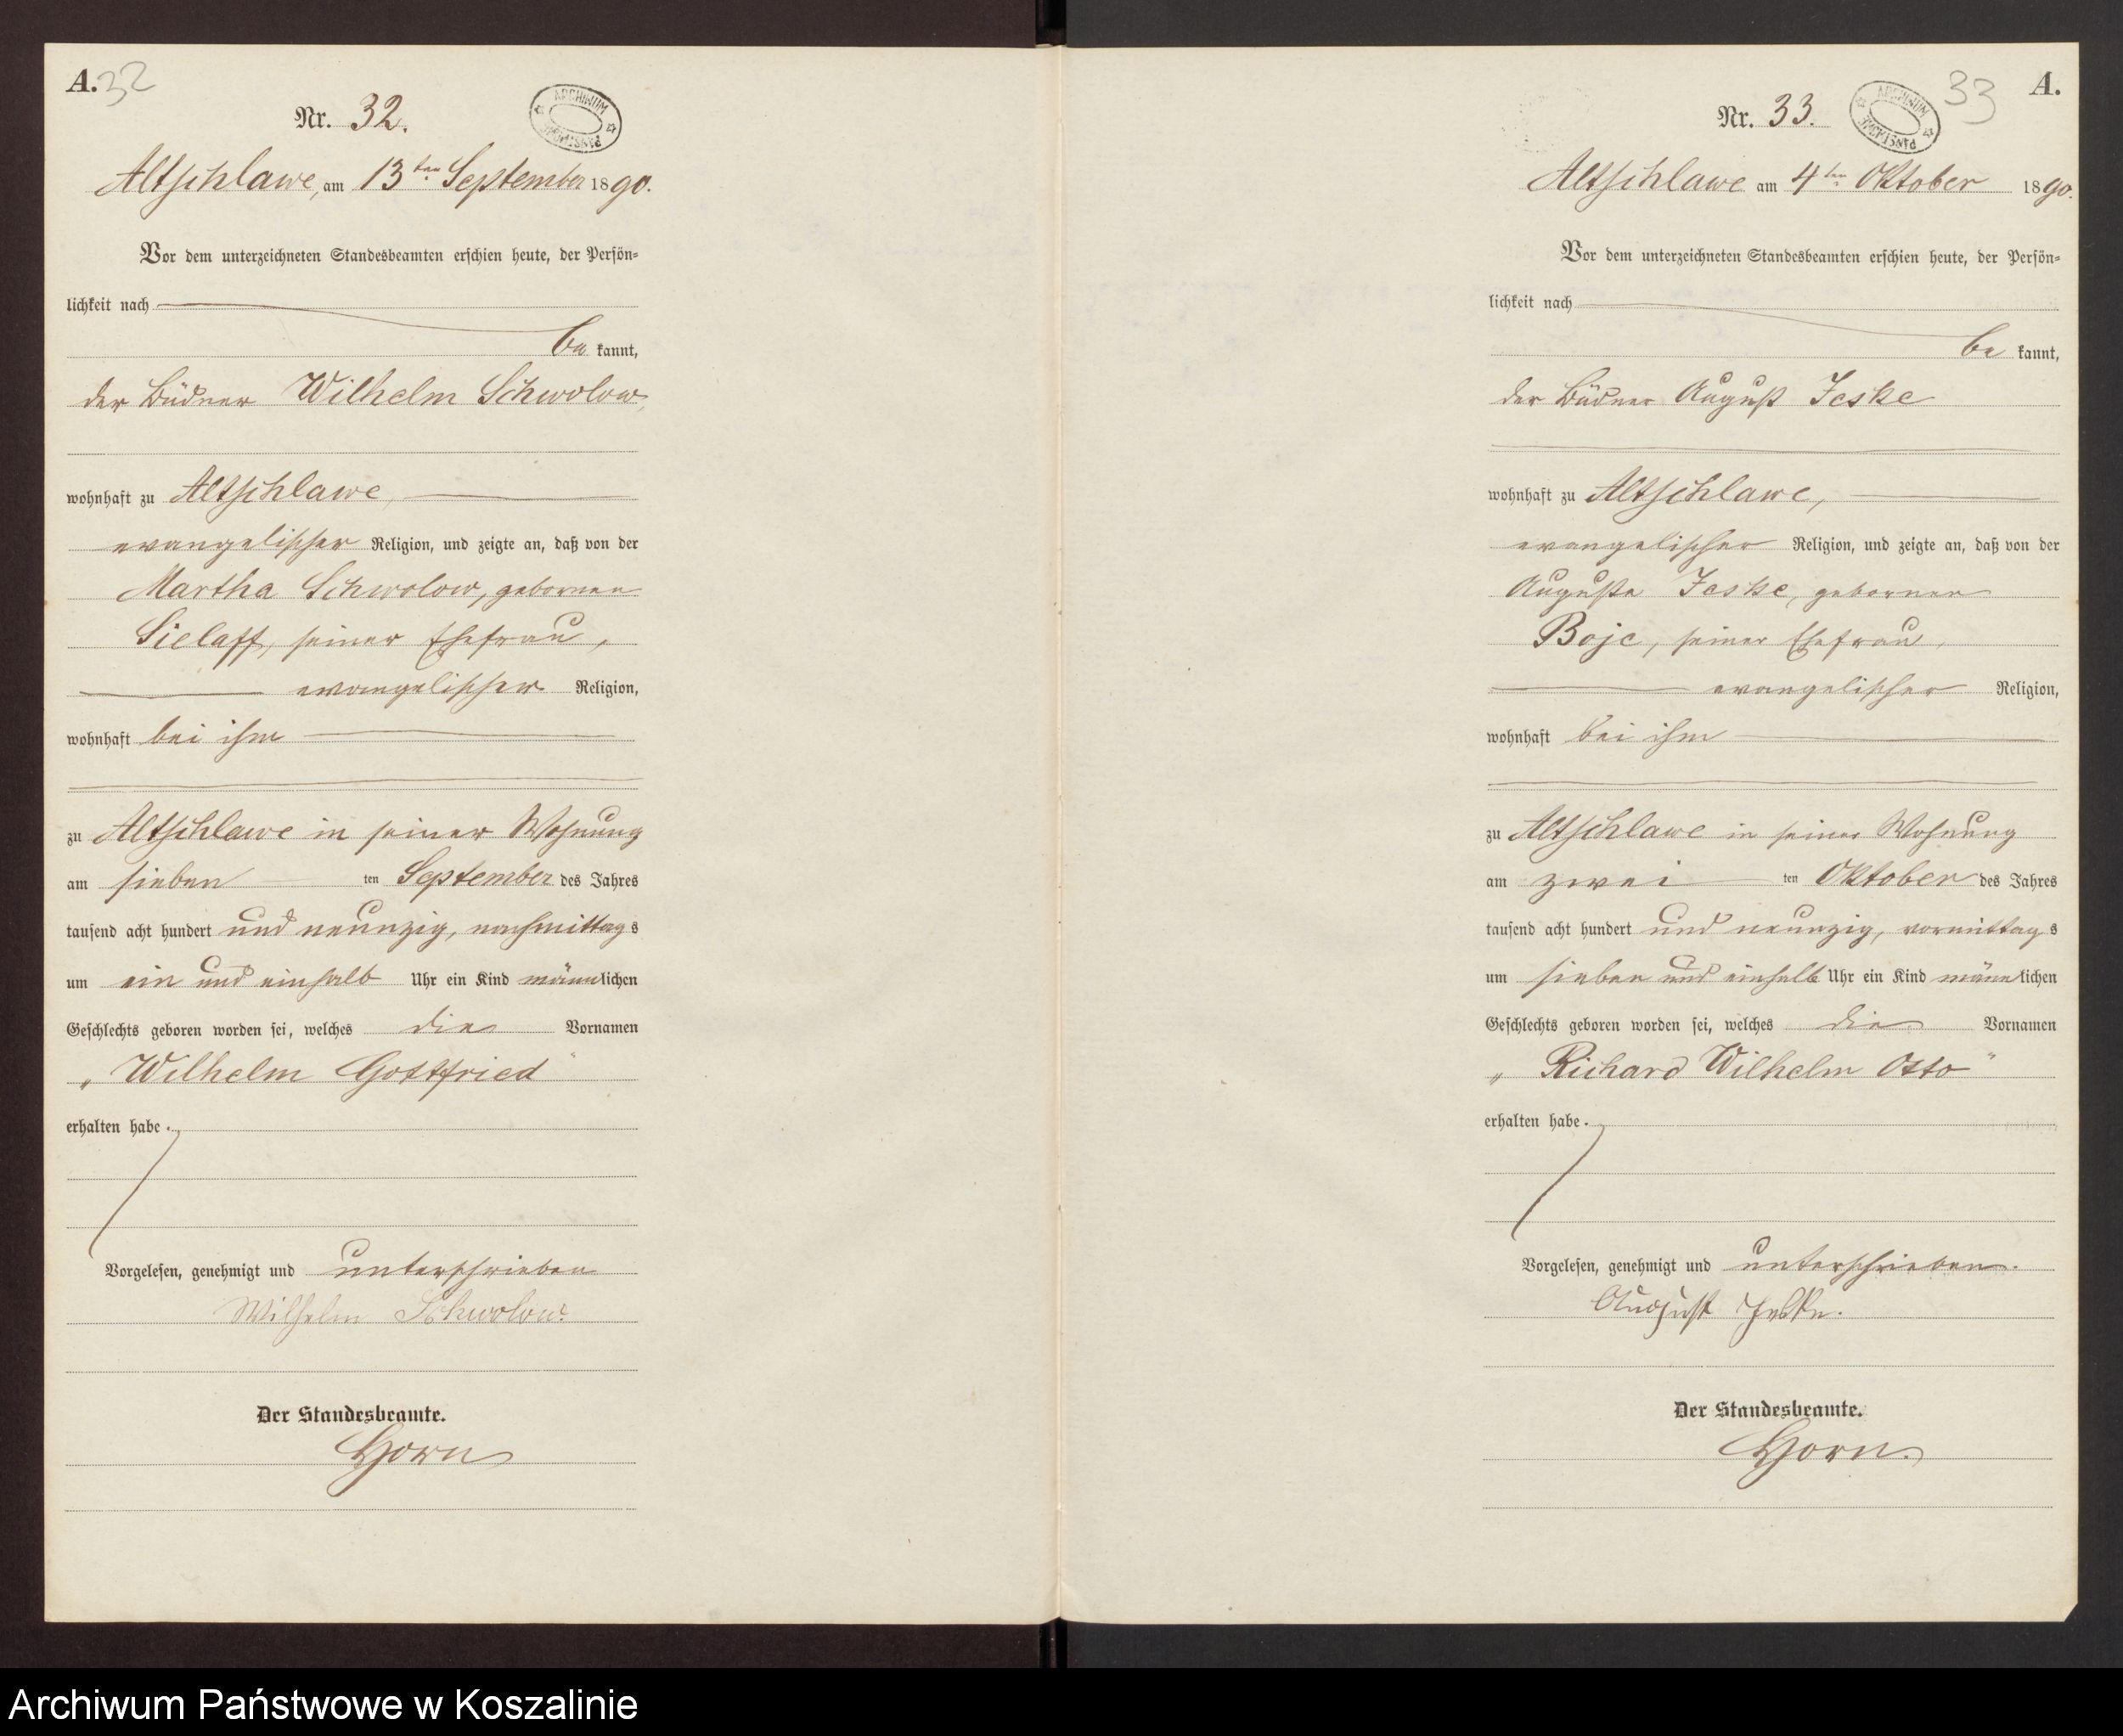 A. 32
Nr. 32.
ARCHIWUM PAŃSTWOWE
Altschlawe, am 13ten September 1890.
Vor dem unterzeichneten Standesbeamten erschien heute, der Persön-
lichkeit nach
be kannt,
der Büdner Wilhelm Schwolow,
wohnhaft zu Altschlawe,
evangelischer Religion, und zeigte an, daß von der
Martha Schwolow, gebornen
Sielaff, seiner Ehefrau,
evangelischer Religion,
wohnhaft bei ihm
zu Altschlawe in seiner Wohnung
am sieben ten September des Jahres
tausend acht hundert und neunzig, nachmittags
um ein und einhalb Uhr ein Kind männlichen
Geschlechts geboren worden sei, welches die Vornamen
„Wilhelm Gottfried“
erhalten habe.
Vorgelesen, genehmigt und unterschrieben
Wilhelm Schwolow.
Der Standesbeamte.
Horn
33 A.
Nr. 33.
ARCHIWUM PAŃSTWOWE
Altschlawe am 4ten Oktober 1890.
Vor dem unterzeichneten Standesbeamten erschien heute, der Persön-
lichkeit nach
be kannt,
der Büdner August Jeske
wohnhaft zu Altschlawe,
evangelischer Religion, und zeigte an, daß von der
Auguste Jeske, gebornen
Boje, seiner Ehefrau,
evangelischer Religion,
wohnhaft bei ihm
zu Altschlawe in seiner Wohnung
am zwei ten Oktober des Jahres
tausend acht hundert und neunzig, vormittags
um sieben und einhalb Uhr ein Kind männlichen
Geschlechts geboren worden sei, welches die Vornamen
„Richard Wilhelm Otto“
erhalten habe.
Vorgelesen, genehmigt und unterschrieben.
August Jeske.
Der Standesbeamte.
Horn.
Archiwum Państwowe w Koszalinie